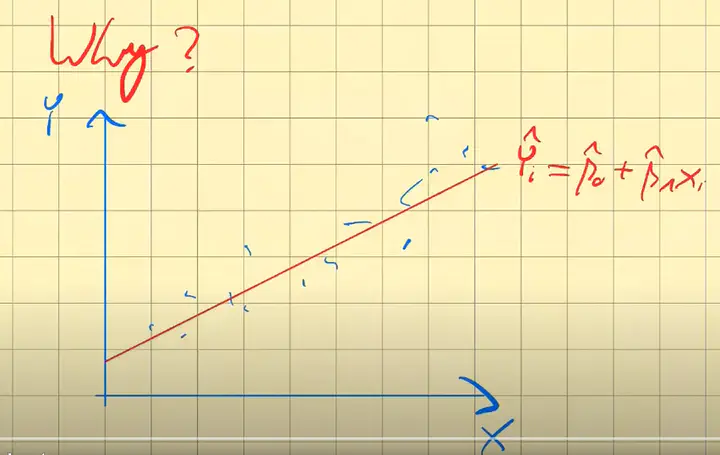 Why?
Y
Ŷᵢ = β̂₀ + β̂₁xᵢ
X